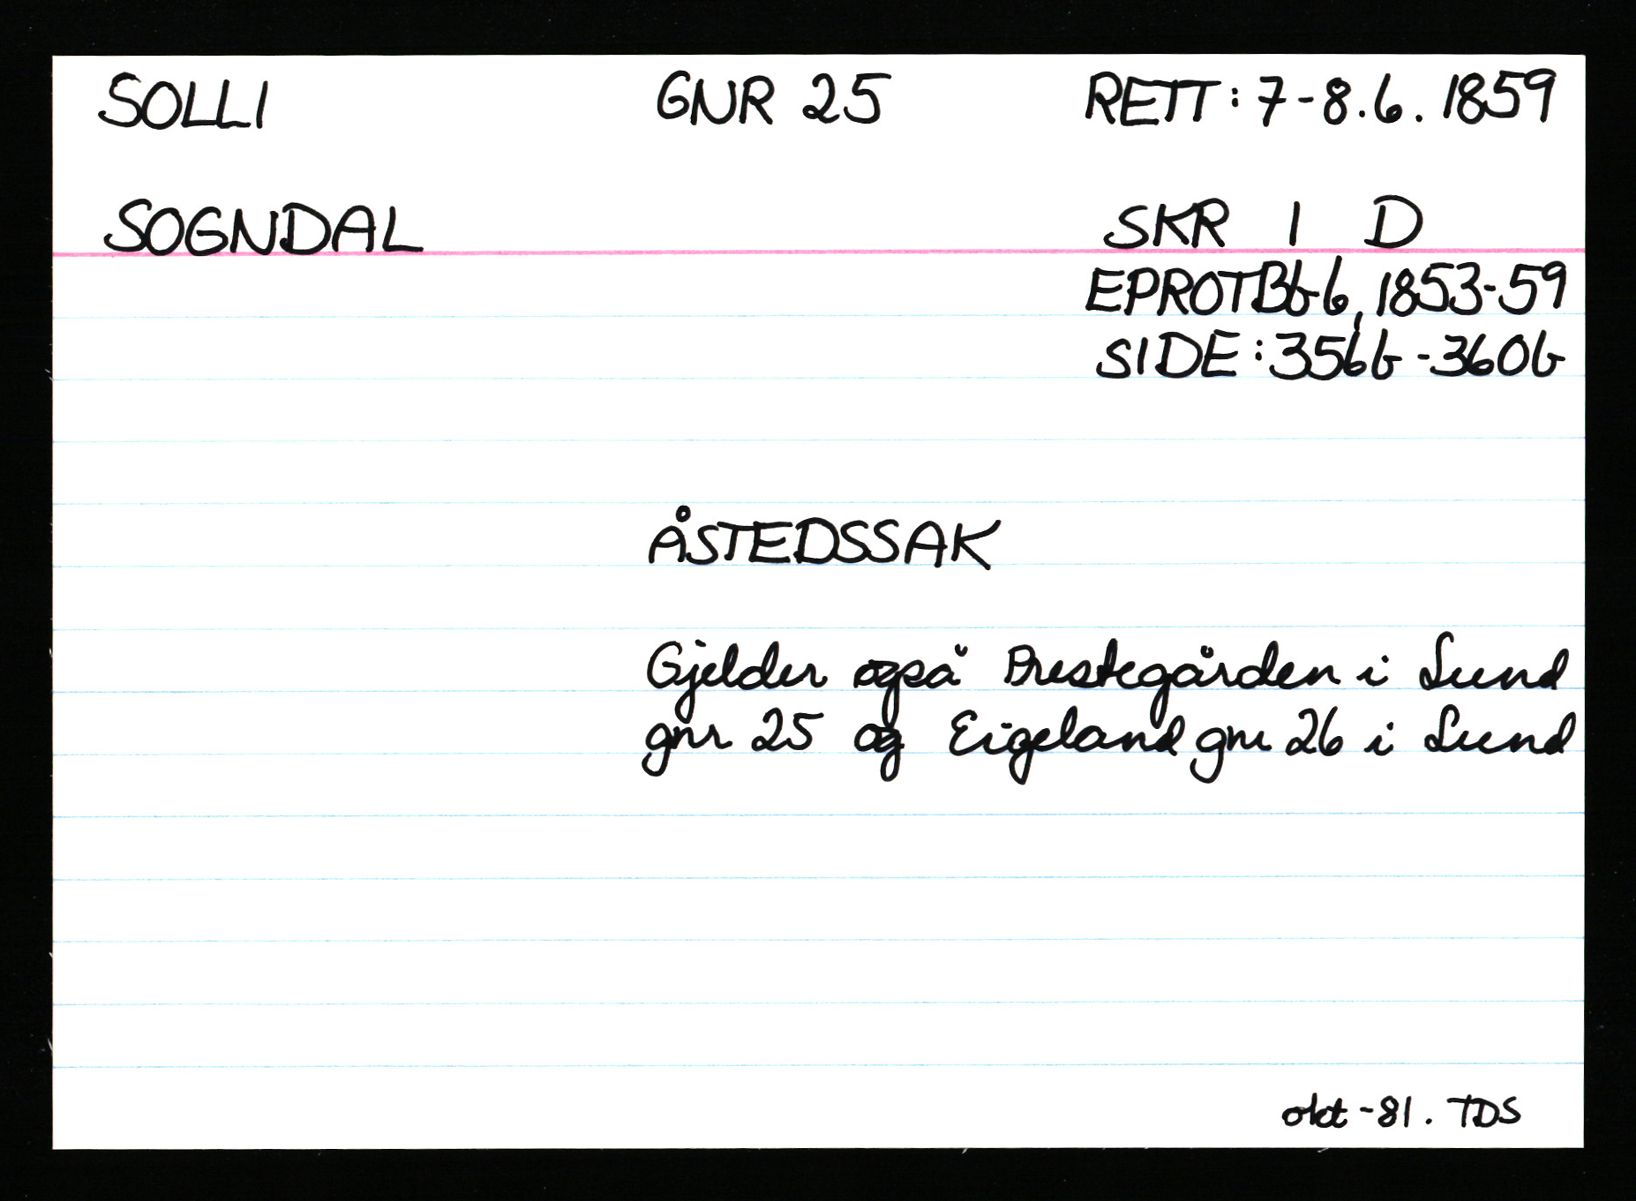 SOLLI GNR 25 RETT: 7-8.6. 1859
SOGNDAL SKR I D
EPROTBb6, 1853-59
SIDE: 356b-360b
ÅSTEDSSAK
Gjelder også Prestegården i Lund
gnr 25 og Eigeland gnr 26 i Lund
okt-81. TDS